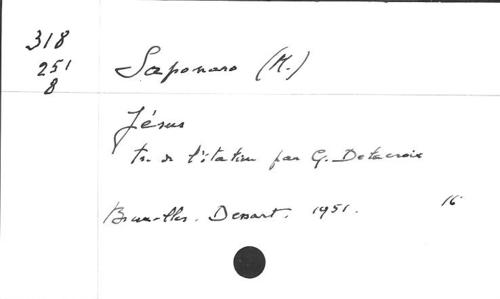 318
251
8
Saponaro (M.)
Jésus
tr. de l'italien par G. Delacroix
Bruxelles. Dessart. 1951. 16